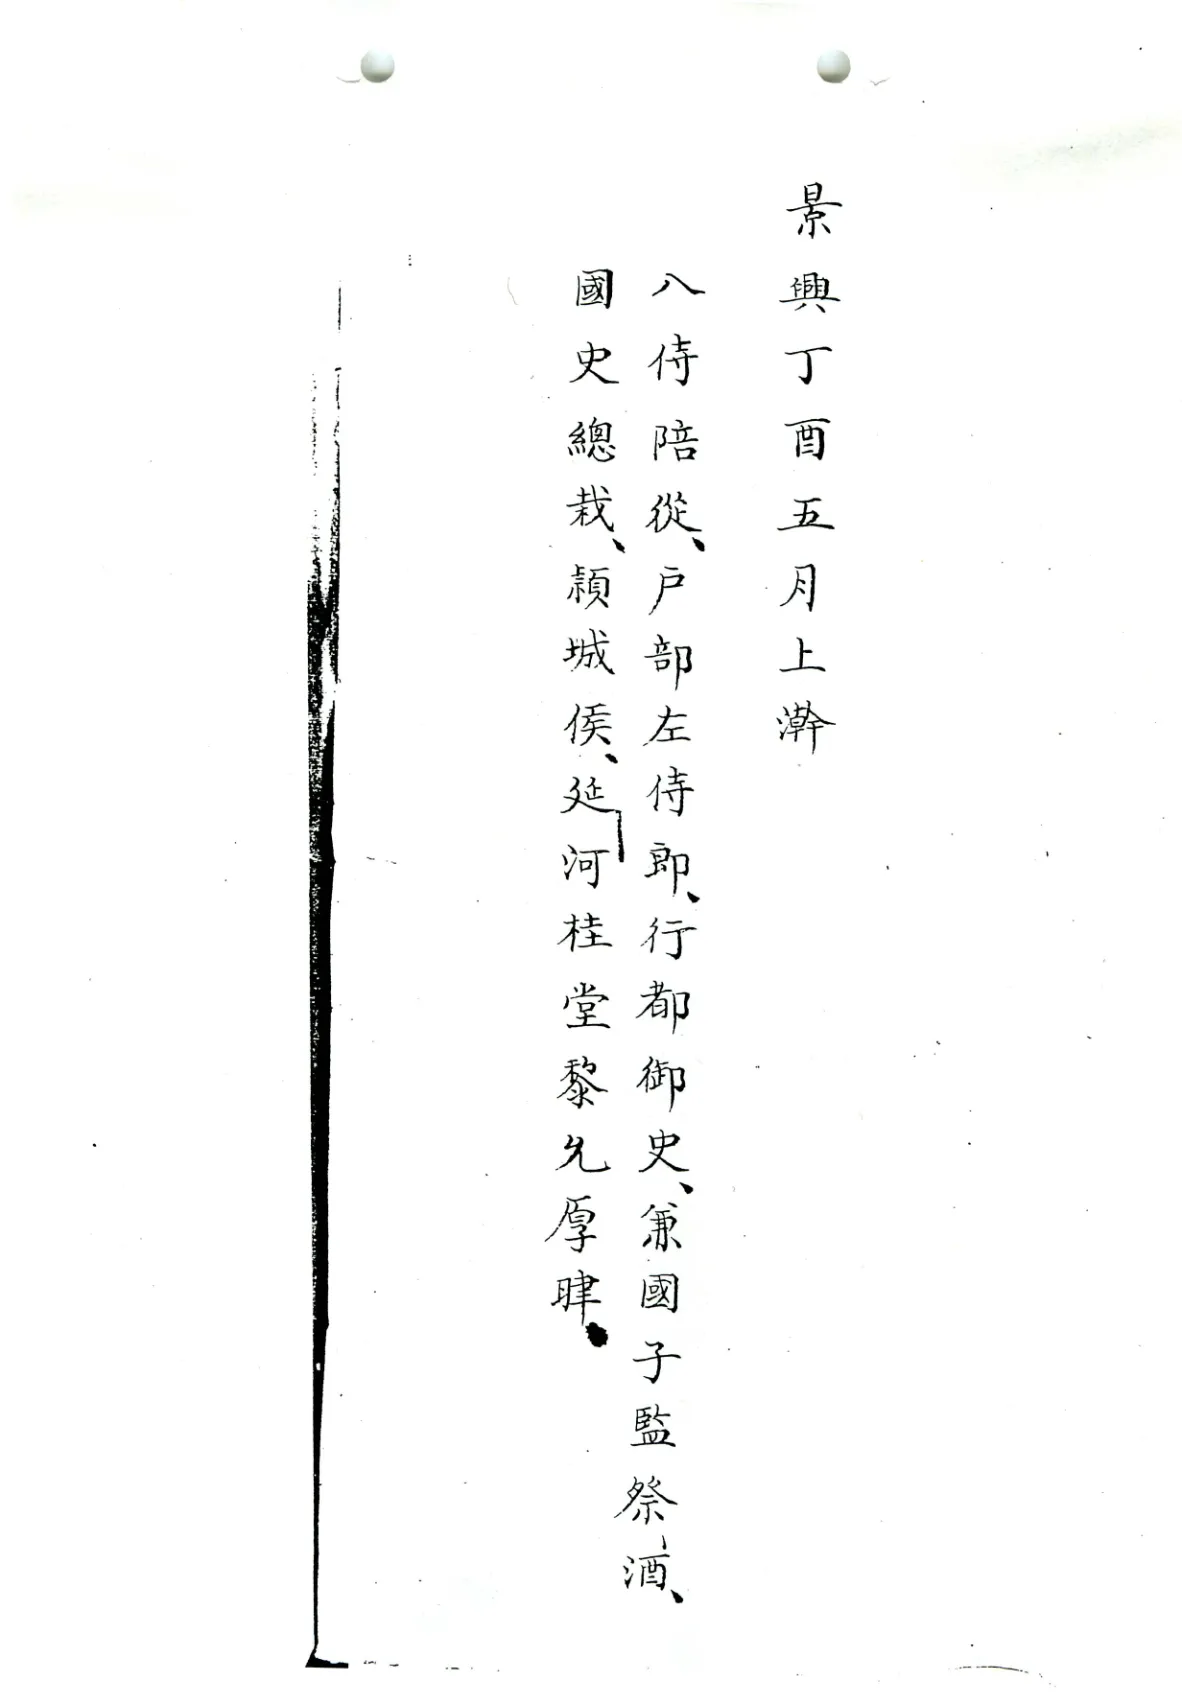 景興丁酉五月上澣
入侍陪從、戶部左侍郎、行都御史、兼國子監祭酒、
國史總裁、頴城侯、延河桂堂黎允厚肄。